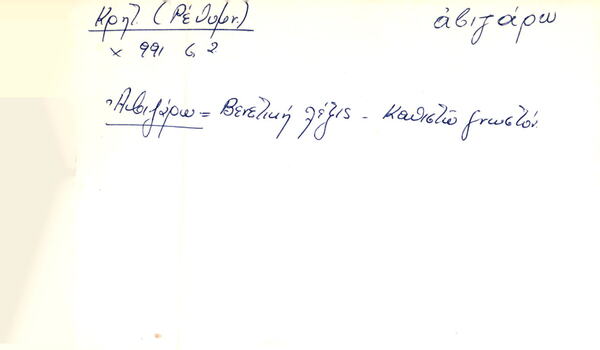 Κρητ. (Ρέθυμν.) ἀβιζάρω
χ 991 σ. 2
Ἀβιζάρω = Βενετική λέξις - Καθιστῶ γνωστόν.